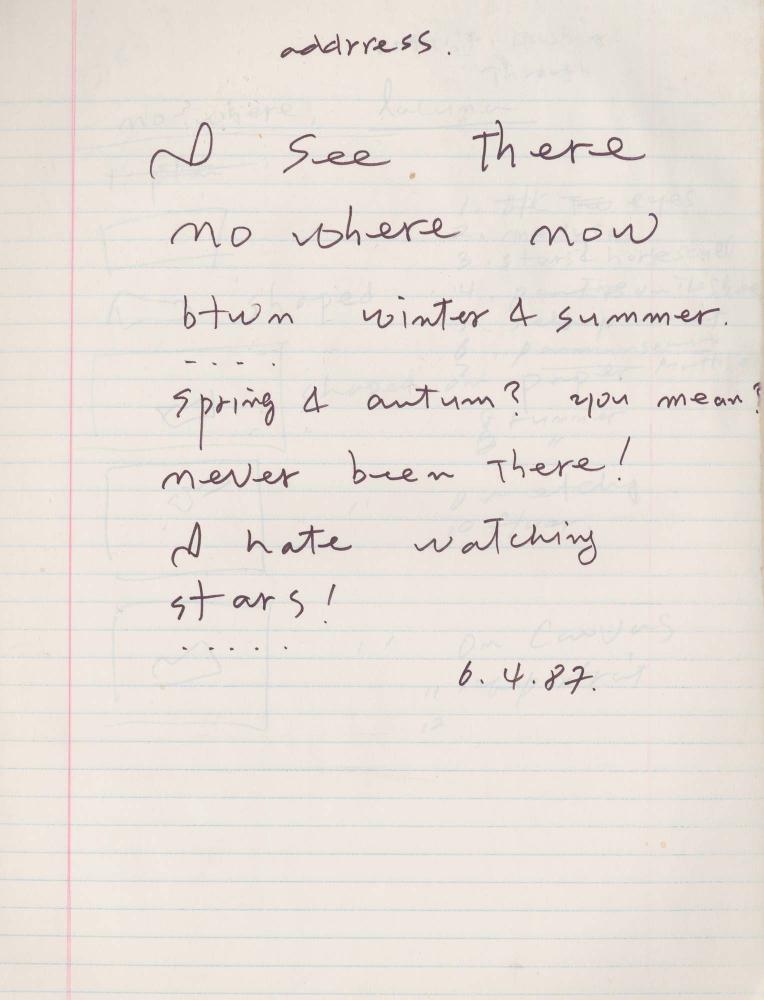 addrress.
I see there
no where now
btwn winter & summer.
- . - .
spring & autum? you mean?
never been there!
I hate watching
stars!
. . . . .
6.4.87.